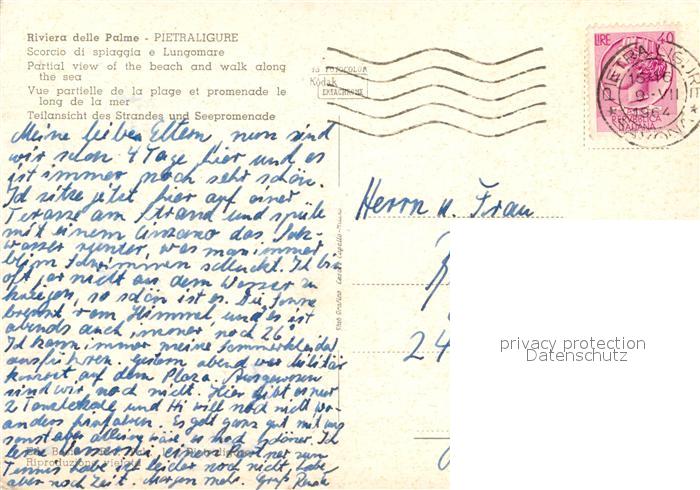 Riviera delle Palme - PIETRALIGURE
Scorcio di spiaggia e Lungomare
Partial view of the beach and walk along
the sea
Vue partielle de la plage et promenade le
long de la mer
Teilansicht des Strandes und Seepromenade
Meine lieben Eltern, nun sind
wir schon 4 Tage hier und es
ist immer noch sehr schön.
Ich sitze jetzt hier auf einer
Terasse am Strand und spüle
mit einem Cinzano das Salz-
wasser runter, was man immer
beim Schwimmen schluckt. Ich bin
oft gar nicht aus dem Wasser zu
kriegen, so schön ist es. Die Sonne
brennt vom Himmel und es ist
abends auch immer noch 26°.
Ich kann immer meine Sommerkleider
ausführen. Gestern abend war Militär
konzert auf dem Plaza. Ausgewesen
sind wir noch nicht. Hier gibt es nur
2 Tanzlokale und Hi will noch nicht wo-
anders hinfahren. Es geht ganz gut mit uns
sonst aber alleine wäre es noch schöner. Ich
lerne einen Partner zum
Tennis habe ich leider noch nicht, habe
aber noch Zeit. Morgen mehr. Gruß Renate
Riproduzione vietata
IS FOTOCOLOR
Kodak
EKTACHROME
LIRE 40
PIETRA LIGURE
15-16
9-VII
1964
* SAVONA *
REPVBBLICA
ITALIANA
Herrn u. Frau
24
privacy protection
Datenschutz